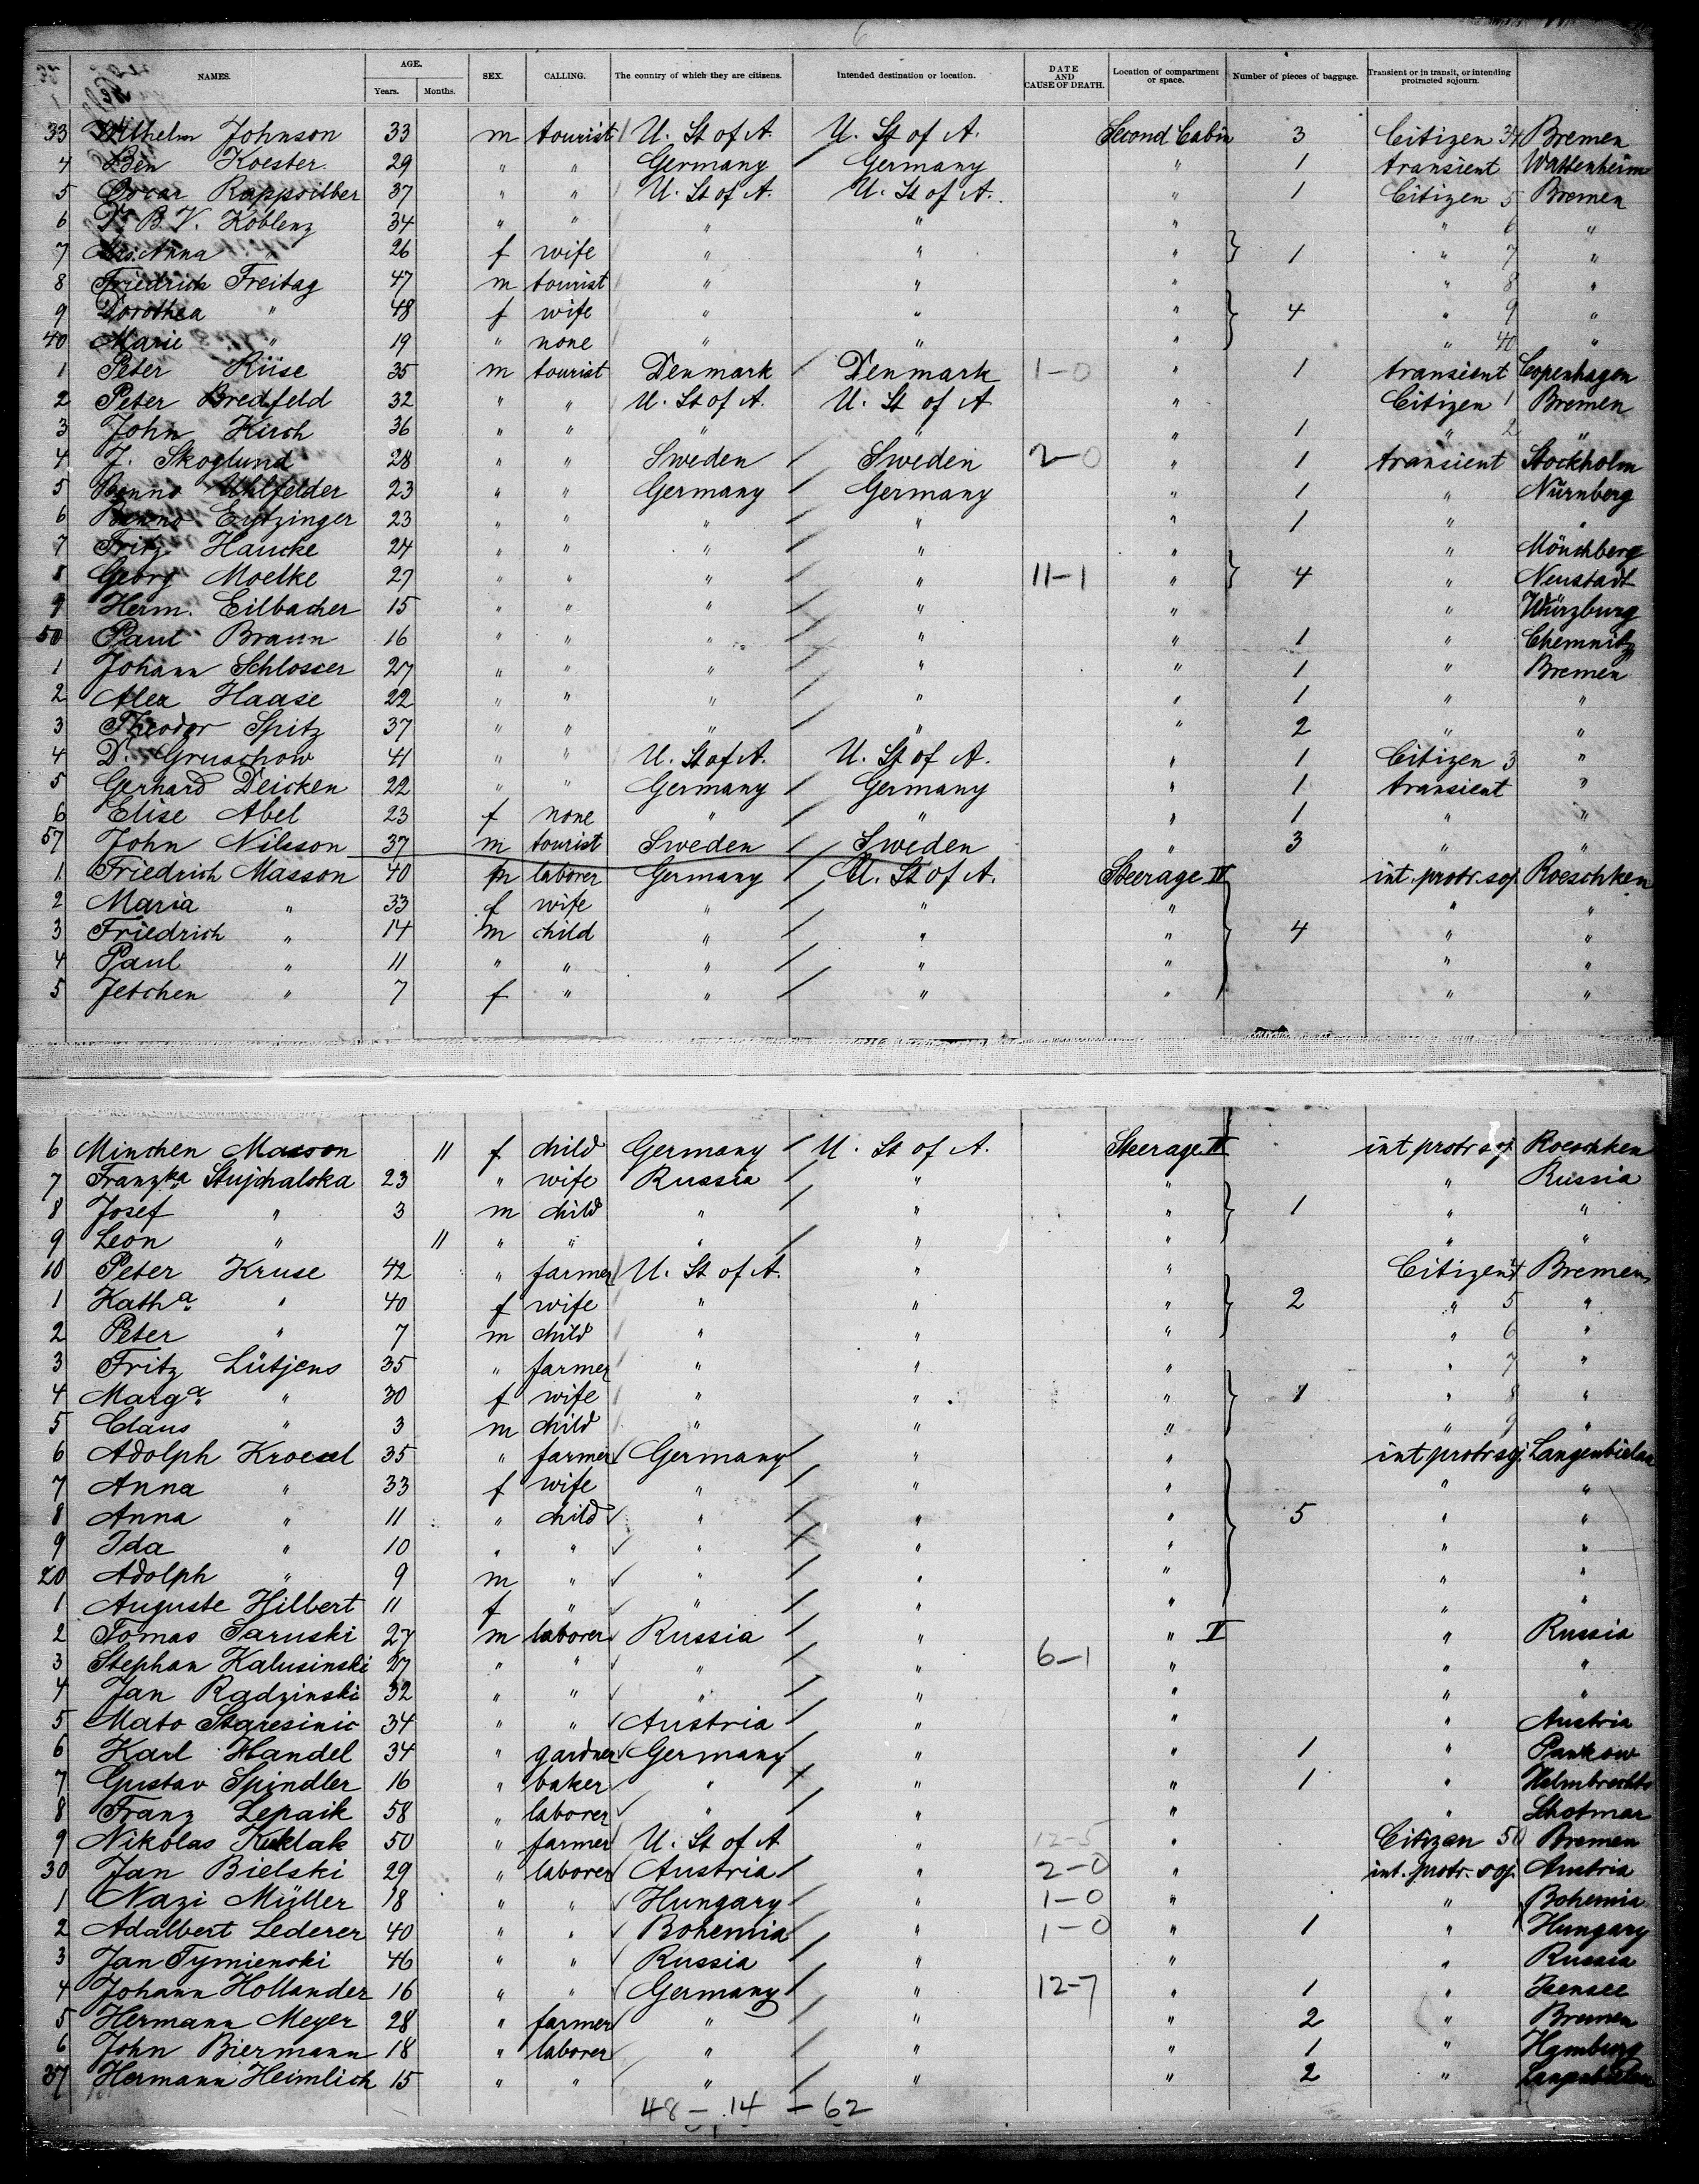 6
NAMES. AGE. Years. Months. SEX. CALLING. The country of which they are citizens. Intended destination or location. DATE AND CAUSE OF DEATH. Location of compartment or space. Number of pieces of baggage. Transient or in transit, or intending protracted sojourn.
33 Wilhelm Johnson 33 m tourist U. St of A. U. St of A. Second Cabin 3 Citizen 34 Bremen
4 Ben Koester 29 " " Germany Germany " 1 transient Wattenheim
5 Oscar Rappsilber 37 " " U. St of A. U. St of A. " 1 Citizen 5 Bremen
6 Dr. B. V. Koblenz 34 " " " " " " 6 "
7 Mrs. Anna " 26 f wife " " " 1 " 7 "
8 Friedrich Freitag 47 m tourist " " " " 8 "
9 Dorothea " 48 f wife " " " 4 " 9 "
40 Marie " 19 " none " " " " 40 "
1 Peter Riise 35 m tourist Denmark Denmark 1-0 " 1 transient Copenhagen
2 Peter Bredfeld 32 " " U. St of A. U. St of A " Citizen 1 Bremen
3 John Kirch 36 " " " " " 1 " 2 "
4 J. Skoglund 28 " " Sweden Sweden 2-0 " 1 transient Stockholm
5 Benno Uhlfelder 23 " " Germany Germany " 1 " Nürnberg
6 Benno Eytzinger 23 " " " " " 1 " "
7 Fritz Haucke 24 " " " " " " Mönchberg
8 Georg Moelke 27 " " " " 11-1 " 4 " Neustadt
9 Herm. Eilbacher 15 " " " " " " Würzburg
50 Paul Braun 16 " " " " " 1 " Chemnitz
1 Johann Schlosser 27 " " " " " 1 " Bremen
2 Alex Haase 22 " " " " " 1 " "
3 Theodor Spitz 37 " " " " " 2 " "
4 Dr. Gruschow 41 " " U. St of A. U. St of A. " 1 Citizen 3 "
5 Gerhard Deicken 22 " " Germany Germany " 1 transient "
6 Elise Abel 23 f none " " " 1 " "
57 John Nilsson 37 m tourist Sweden Sweden " 3 " "
1 Friedrich Masson 40 m laborer Germany U. St of A. Steerage IV int. protr. soj. Roeschken
2 Maria " 33 f wife " " " " "
3 Friedrich " 14 m child " " " 4 " "
4 Paul " 11 " " " " " " "
5 Jetchen " 7 f " " " " " "
6 Minchen Masson 11 f child Germany U. St of A. Steerage II int protr soj. Roeschken
7 Franzka Stujchalska 23 " wife Russia " " " Russia
8 Josef " 3 m child " " " 1 " "
9 Leon " 11 " " " " " " "
10 Peter Kruse 42 " farmer U. St of A. " " Citizen 4 Bremen
1 Katha " 40 f wife " " " 2 " 5 "
2 Peter " 7 m child " " " " 6 "
3 Fritz Lütjens 35 " farmer " " " " 7 "
4 Marga " 30 f wife " " " 1 " 8 "
5 Claus " 3 m child " " " " 9 "
6 Adolph Kroesel 35 " farmer Germany " " int protr soj. Langenbielau
7 Anna " 33 f wife " " " " "
8 Anna " 11 " child " " " 5 " "
9 Ida " 10 " " " " " " "
20 Adolph " 9 m " " " " " "
1 Auguste Hilbert 11 f " " " " " "
2 Tomas Saruski 27 m laborer Russia " " I " Russia
3 Stephan Kalusinski 27 " " " " 6-1 " " "
4 Jan Radzinski 32 " " " " " " "
5 Mato Staresinic 34 " " Austria " " " Austria
6 Karl Handel 34 " gardner Germany " " 1 " Pankow
7 Gustav Spindler 16 " baker " " " 1 " Helmbrechts
8 Franz Lepaik 58 " laborer " " " " Schotmar
9 Nikolas Kuklak 50 " farmer U. St of A " 12-5 " Citizen 50 Bremen
30 Jan Bielski 29 " laborer Austria " 2-0 " int. protr. soj. Austria
1 Nazi Müller 18 " " Hungary " 1-0 " " Bohemia
2 Adalbert Lederer 40 " " Bohemia " 1-0 " 1 " Hungary
3 Jan Tymienski 46 " " Russia " " " Russia
4 Johann Hollander 16 " " Germany " 12-7 " 1 " Isensee
5 Hermann Meyer 28 " farmer " " " 2 " Bremen
6 John Biermann 18 " laborer " " " 1 " Hymburg
37 Hermann Heimlich 15 " " " " " 2 " Langenbielau
48 - 14 - 62